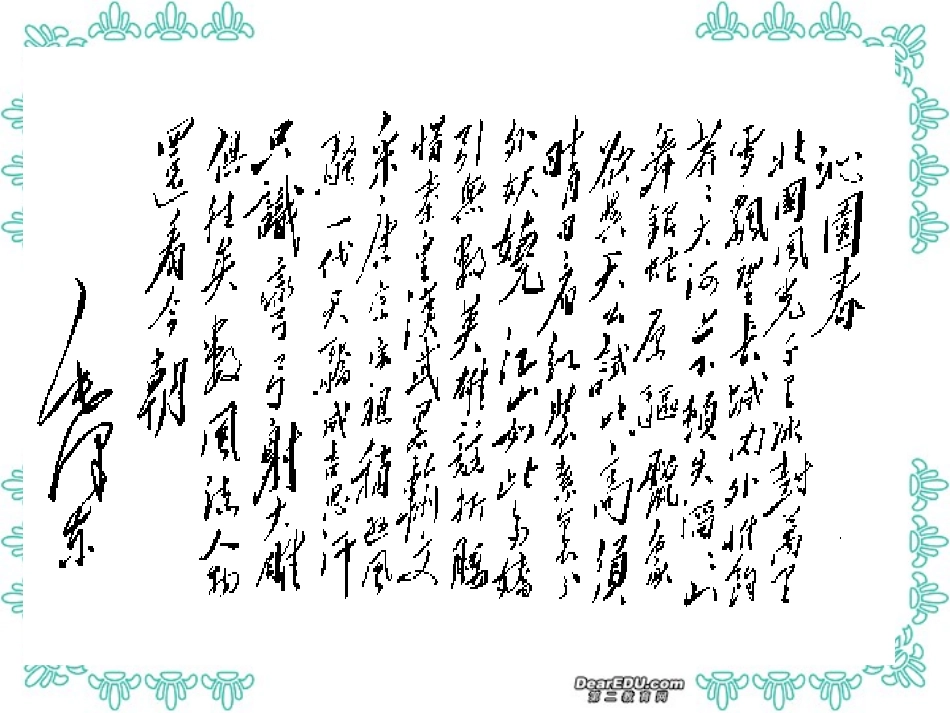 沁園春
北國風光千里冰封萬里
雪飄望長城内外惟餘
莽々大河上下頓失滔々山
舞銀蛇原驅臘象
欲與天公試比高須
晴日看紅裝素裹分
外妖嬈 江山如此多嬌
引無數英雄競折腰
惜秦皇漢武略輸文
采唐宗宋祖稍遜風
騷一代天驕成吉思汗
只識彎弓射大雕
俱往矣數風流人物
還看今朝
毛澤東
DearEDU.com
第二教育网